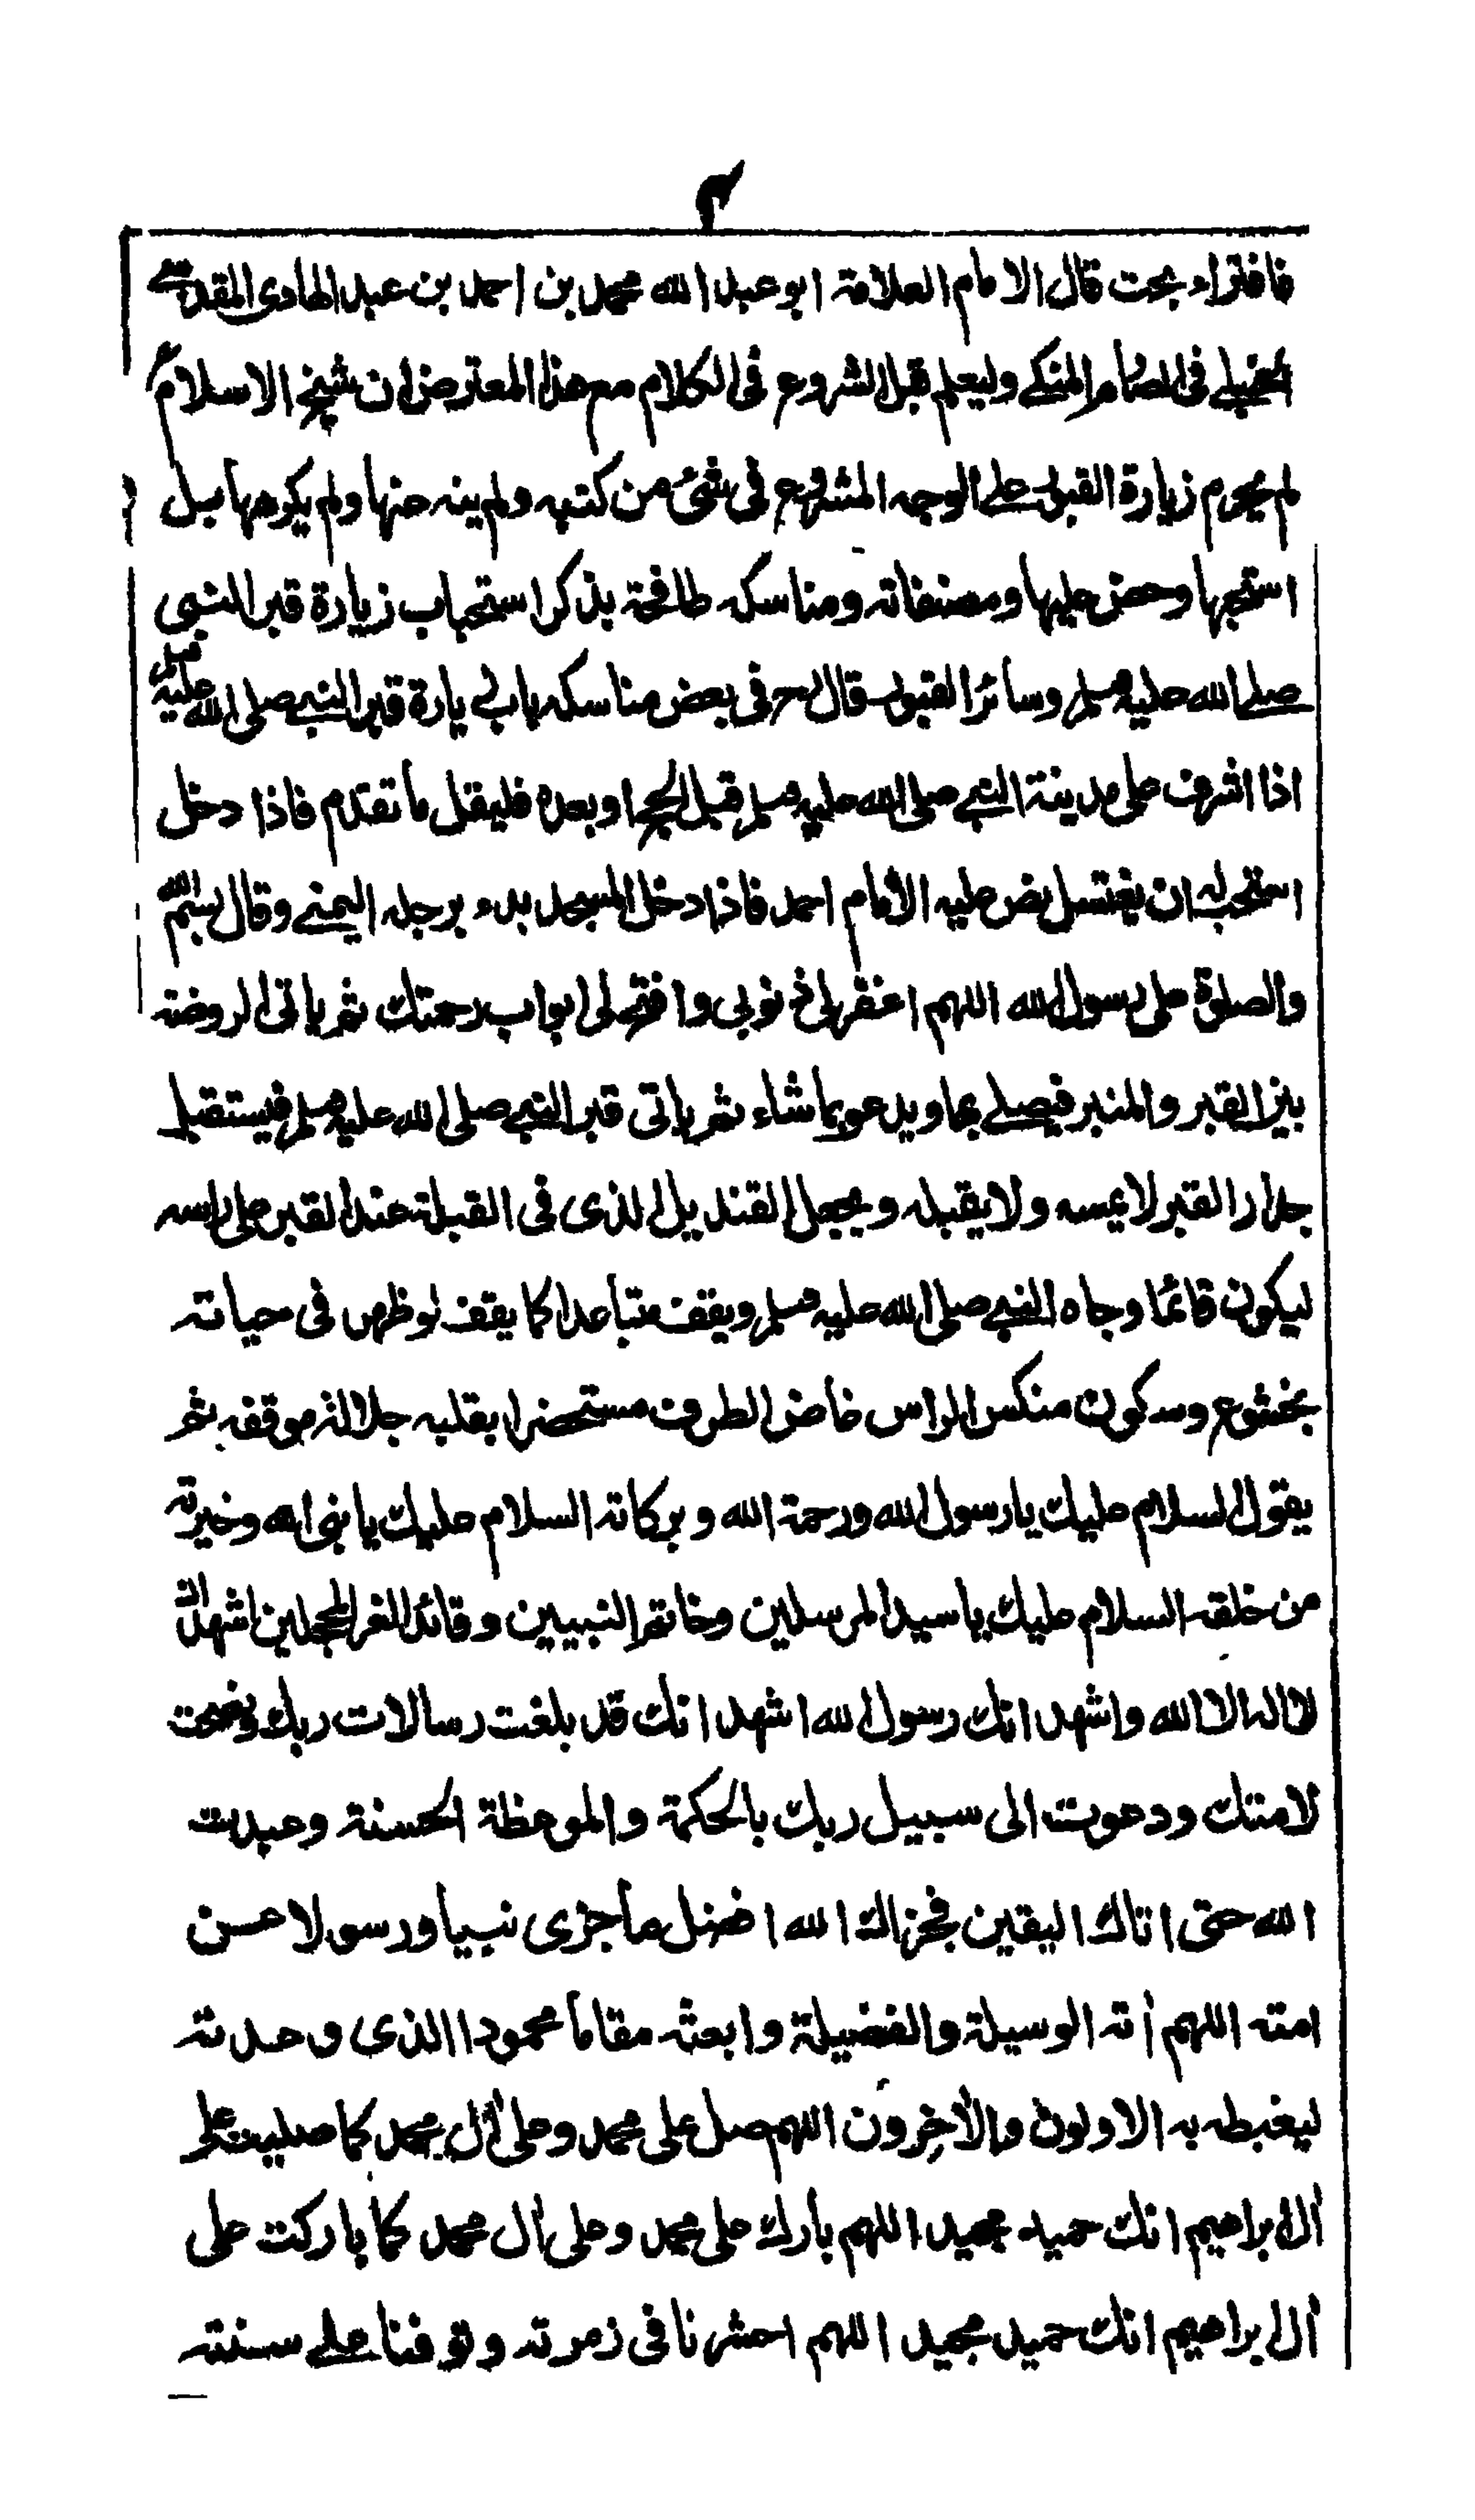 ٣
فافتراء بحت قال الامام العلامة ابو عبد الله محمد بن احمد بن عبد الهادى المقدسے
الحنبلے فى الصارم المنكے وليعلم قبل الشروع فى الكلام مع هذا المعترض ان شيخ الاسلام
لم يحرم زيارة القبور علے الوجه المشروع فى شئ من كتبه ولم ينه عنها ولم يكرهها بل
استحبها وحض عليها ومصنفاته ومناسكه طافحة بذكر استحباب زيارة قبر النبى
صلے الله عليه وسلم وسائر القبور قال رح فى بعض مناسكه باب زيارة قبر النبے صلى الله عليه وسلم
اذا اشرف على مدينة النبے صلى الله عليه وسلم قبل الحج او بعده فليقل ما تقدم فاذا دخل
استحب له ان يغتسل نص عليه الامام احمد فاذا دخل المسجد بدء برجله اليمنے وقال بسم الله
والصلوة على رسول الله اللهم اغفر لى ذنوبى وافتح لى ابواب رحمتك ثم ياتى الروضة
بين القبر والمنبر فيصلے بها ويدعو بما شاء ثم ياتى قبر النبے صلى الله عليه وسلم فيستقبل
جدار القبر لا يمسه ولا يقبله ويجعل القنديل الذى فى القبلة عند القبر على راسه
ليكون قائما وجاه النبے صلى الله عليه وسلم ويقف متباعدا كما يقف لو ظهر فى حياته
بخشوع وسكون منكس الراس غاض الطرف مستحضرا بقلبه جلالة موقفه ثم
يقول السلام عليك يا رسول الله ورحمة الله وبركاته السلام عليك يا نبى الله وخيرته
من خلقه السلام عليك يا سيد المرسلين وخاتم النبيين وقائد الغر المحجلين اشهد ان
لا اله الا الله واشهد انك رسول الله اشهد انك قد بلغت رسالات ربك ونصحت
لامتك ودعوت الى سبيل ربك بالحكمة والموعظة الحسنة وعبدت
الله حتى اتاك اليقين فجزاك الله افضل ما جزى نبيا ورسولا عن
امته اللهم أته الوسيلة والفضيلة وابعثه مقاما محمودا الذى وعدته
ليغبطه به الاولون والأخرون اللهم صل على محمد وعلى أل محمد كما صليت على
أل ابراهيم انك حميد مجيد اللهم بارك على محمد وعلى أل محمد كما باركت على
أل ابراهيم انك حميد مجيد اللهم احشرنا فى زمرته وتوفنا علے سنته